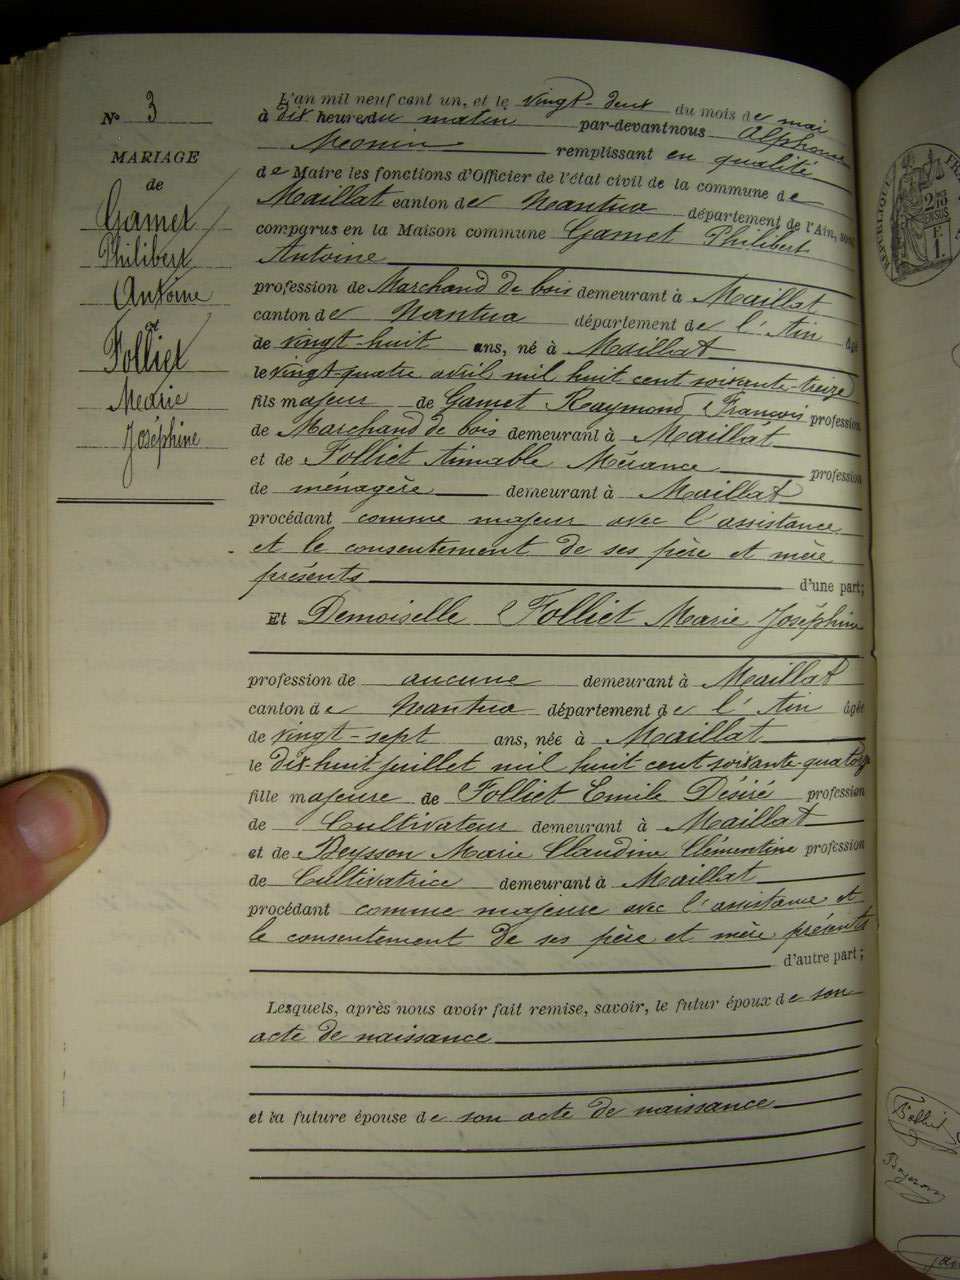 N° 3
MARIAGE
de
Gamet
Philibert
Antoine
et
Folliet
Marie
Joséphine
L'an mil neuf cent un, et le vingt-deux du mois de mai
à dix heures du matin par-devant nous Alphonse
Monin remplissant en qualité
de Maire les fonctions d'Officier de l'état civil de la commune de
Maillat canton de Nantua département de l'Ain, sont
comparus en la Maison commune Gamet Philibert
Antoine
profession de Marchand de bois demeurant à Maillat
canton de Nantua département de l'Ain âgé
de vingt-huit ans, né à Maillat
le vingt-quatre avril mil huit cent soixante-treize
fils majeur de Gamet Raymond François profession
de Marchand de bois demeurant à Maillat
et de Folliet Aimable Mérance profession
de ménagère demeurant à Maillat
procédant comme majeur avec l'assistance
et le consentement de ses père et mère
présents d'une part;
Et Demoiselle Folliet Marie Joséphine
profession de aucune demeurant à Maillat
canton de Nantua département de l'Ain âgée
de vingt-sept ans, née à Maillat
le dix-huit juillet mil huit cent soixante-quatorze
fille majeure de Folliet Emile Désiré profession
de Cultivateur demeurant à Maillat
et de Beysson Marie Claudine Clémentine profession
de Cultivatrice demeurant à Maillat
procédant comme majeure avec l'assistance et
le consentement de ses père et mère présents
d'autre part;
Lesquels, après nous avoir fait remise, savoir, le futur époux de son
acte de naissance
et la future épouse de son acte de naissance